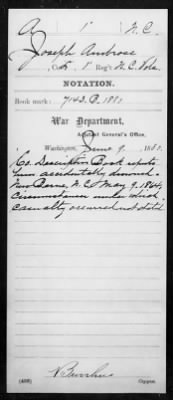 A | 1 | N.C.
Joseph Ambrose
Co. , 1 Reg't N.C. Vols.
NOTATION.
Book mark: 7143.B.1880
War Department,
Adjutant General's Office,
Washington, June 9, 1880.
Co. Descriptive Book reports
him accidentally drowned
New Berne, N.C. May 9, 1864,
circumstances under which
casualty occurred not stated.
Copyist.